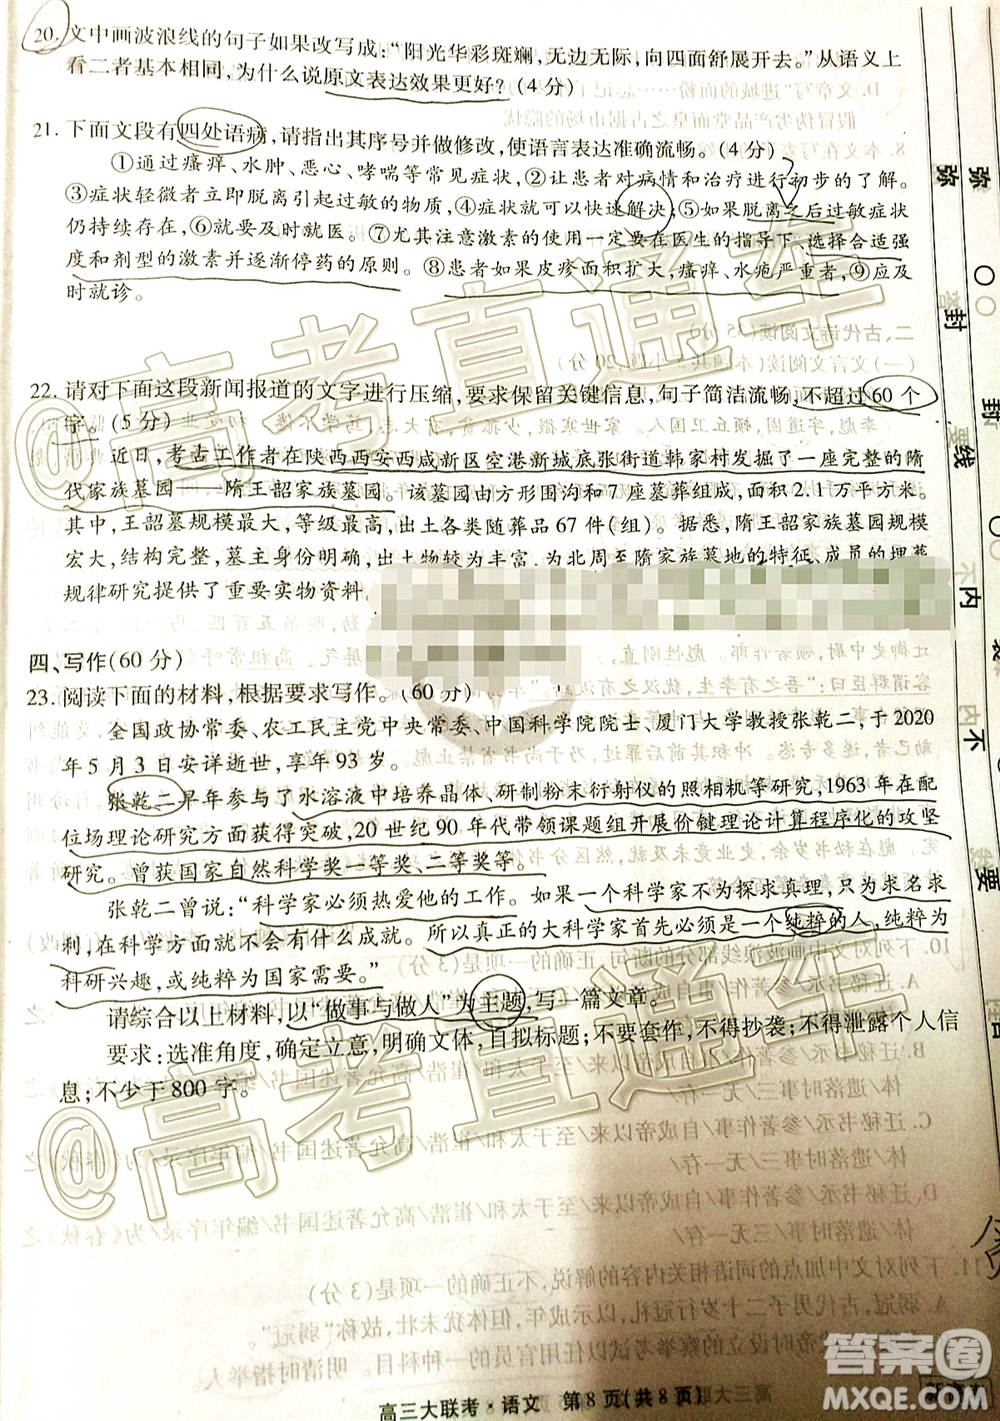 20. 文中画波浪线的句子如果改写成:“阳光华彩斑斓,无边无际,向四面舒展开去。”从语义上
看二者基本相同,为什么说原文表达效果更好?(4分)
21. 下面文段有四处语病,请指出其序号并做修改,使语言表达准确流畅。(4分)
①通过瘙痒、水肿、恶心、哮喘等常见症状,②让患者对病情和治疗进行初步的了解。
③症状轻微者立即脱离引起过敏的物质,④症状就可以快速解决;⑤如脱离之后过敏症状
仍持续存在,⑥就要及时就医。⑦尤其注意激素的使用一定要在医生的指导下,选择合适强度
和剂型的激素并逐渐停药的原则。⑧如果皮疹面积扩大,瘙痒、水疱严重者,⑨应及
时就诊。
22. 请对下面这段新闻报道的文字进行压缩,要求保留关键信息,句子简洁流畅,不超过60个
字。(5分)
近日,考古工作者在陕西西安西咸新区空港新城底张街道韩家村发掘了一座完整的隋
代家族墓园——隋王韶家族墓园。该墓园由方形围沟和7座墓葬组成,面积2.1万平方米。
其中,王韶墓规模最大,等级最高,出土各类随葬品67件(组)。据悉,隋王韶家族墓园规模
宏大,结构完整,墓主身份明确,出土物较为丰富,为北周至隋家族墓地的特征、成员的埋葬
规律研究提供了重要实物资料。
四、写作(60分)
23. 阅读下面的材料,根据要求写作。(60分)
全国政协常委、农工民主党中央常委、中国科学院院士、厦门大学教授张乾二,于2020
年5月3日安详逝世,享年93岁。
张乾二早年参与了水溶液中培养晶体、研制粉末衍射仪的照相机等研究,1963年在配
位场理论研究方面获得突破,20世纪90年代带领课题组开展价键理论计算程序化的攻坚
研究。曾获国家自然科学奖一等奖、二等奖等。
张乾二曾说:“科学家必须热爱他的工作。如果一个科学家不为探求真理,只为求名求
利,在科学方面就不会有什么成就。所以真正的大科学家首先必须是一个纯粹的人,纯粹为
科研兴趣,或纯粹为国家需要。”
请综合以上材料,以“做事与做人”为主题,写一篇文章。
要求:选准角度,确定立意,明确文体,自拟标题;不要套作,不得抄袭;不得泄露个人信
息;不少于800字。
高三大联考·语文 第8页(共8页)
@高考直通车
@高考直通车
弥
封
线
内
不
要
答案圈
MXQE.COM